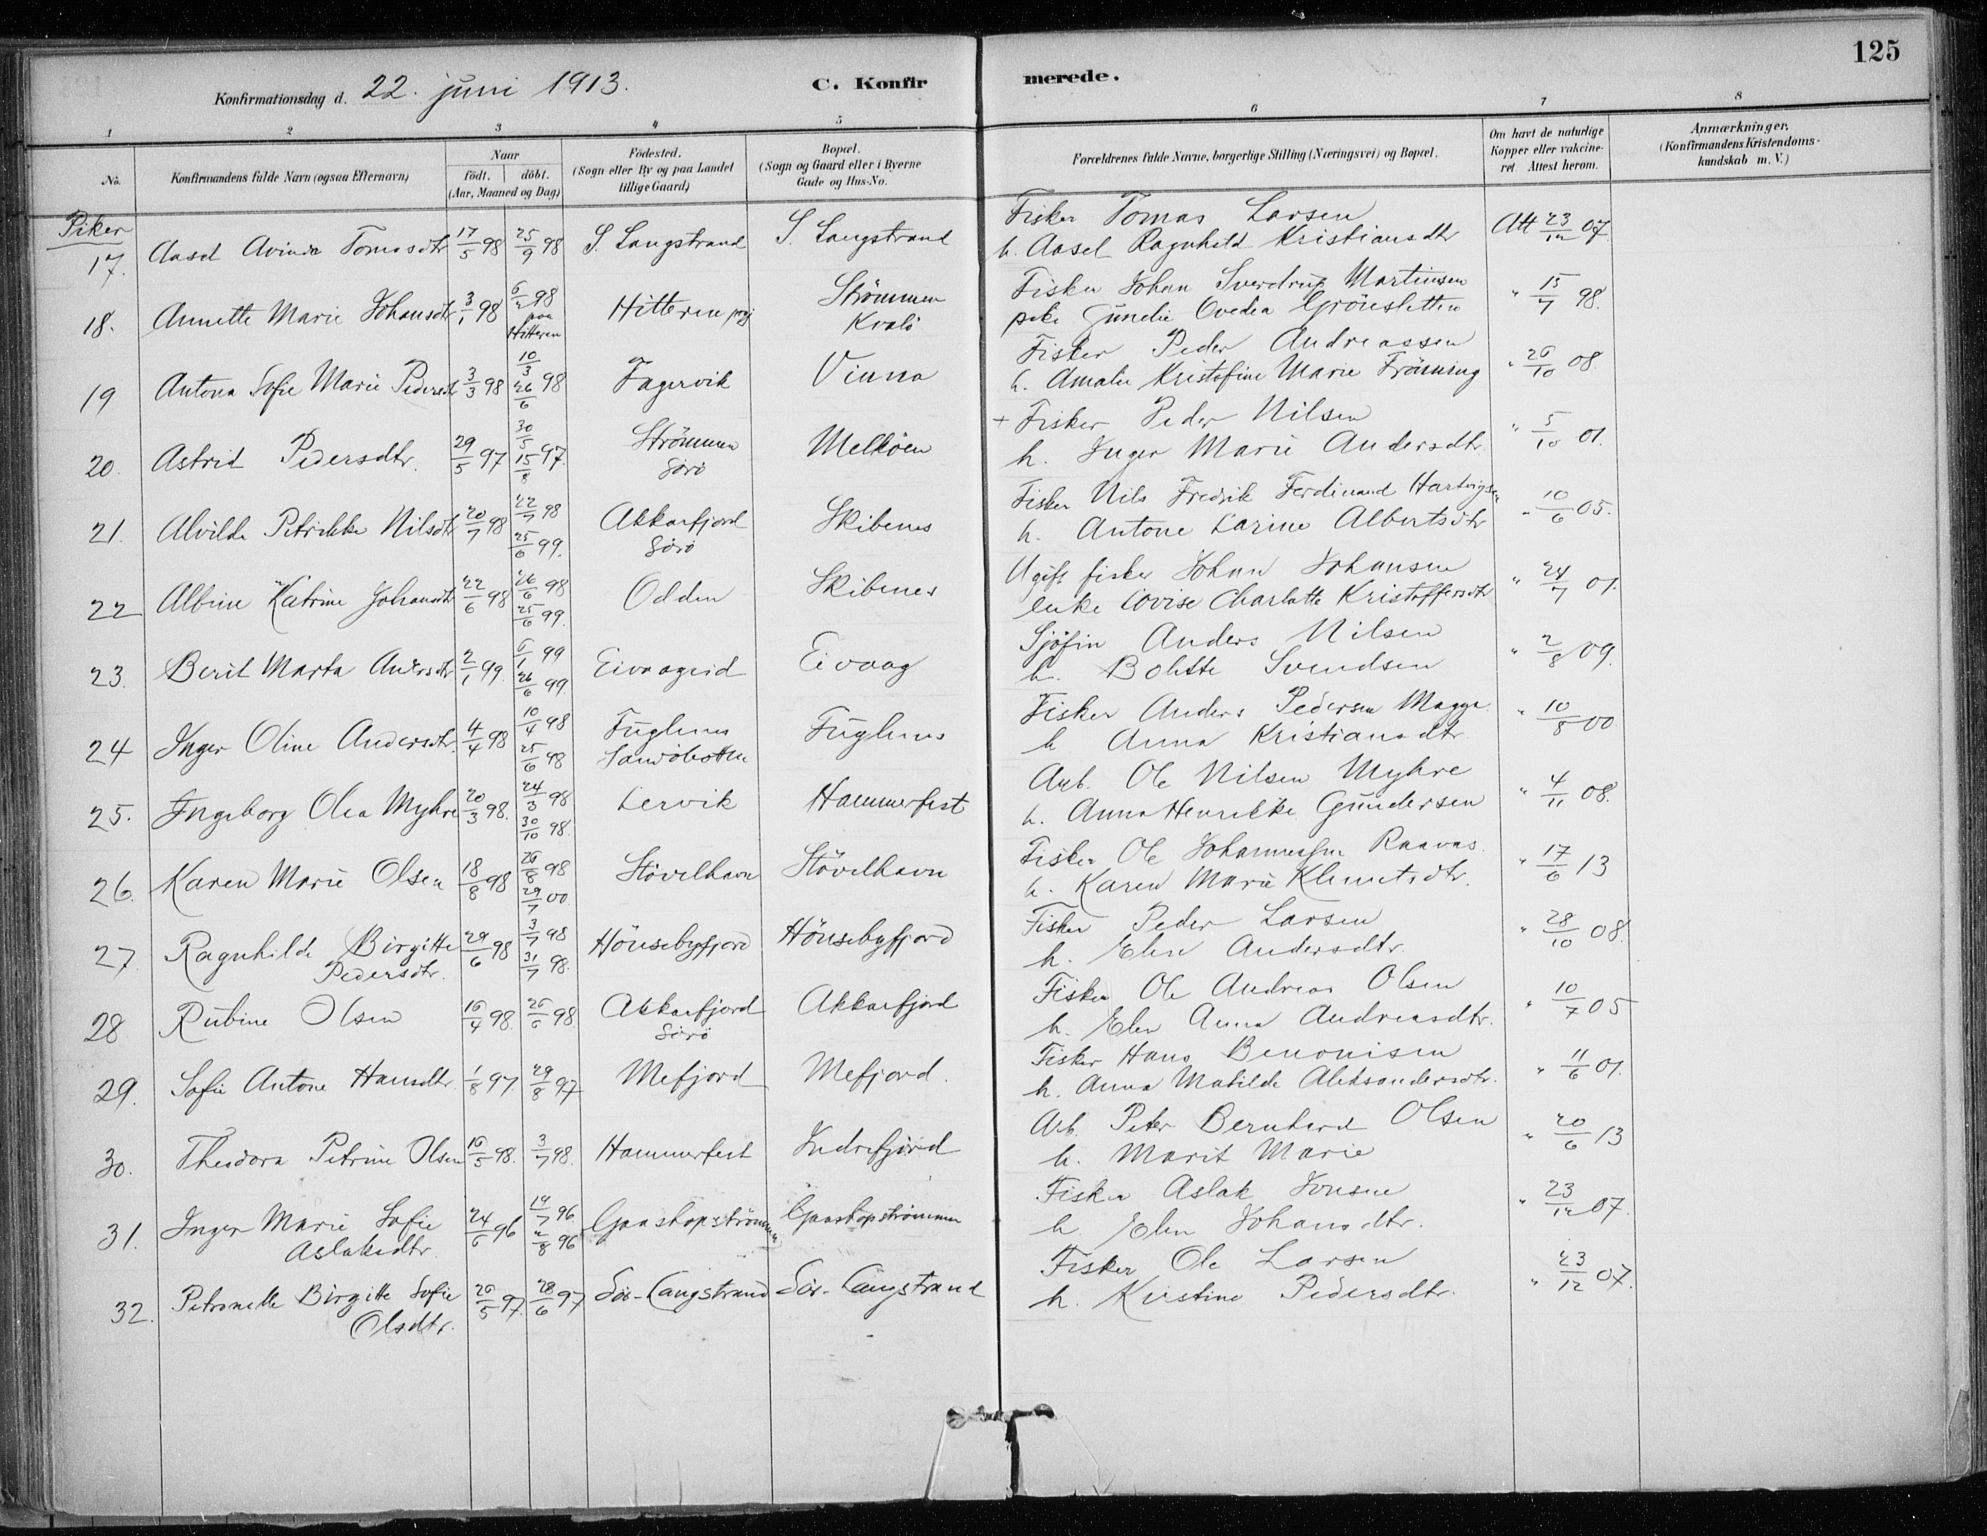 125
Konfirmationsdag d. 22. juni 1913. C. Konfirmerede.
1 2 3 4 5 6 7 8
No. Konfirmandens fulde Navn (ogsaa Efternavn) Naar født. døbt. (Aar, Maaned og Dag) Fødested. (Sogn eller By og paa Landet tillige Gaard) Bopæl. (Sogn og Gaard eller i Byerne Gade og Hus-No. Forældrenes fulde Navne, borgerlige Stilling (Næringsvei) og Bopæl. Om havt de naturlige Kopper eller vakcineret Attest herom. Anmærkninger. (Konfirmandens Kristendomskundskab m. V.)
Piker
17. Aasel Avinda Tomasdtr 17/5 98 25/9 98 S. Langstrand S. Langstrand Fisker Tomas Larsen
h. Aasel Ragnhild Kristiansdtr Att 23/12 07
18. Annette Marie Johansdtr 3/1 98 98 paa Hitteren Hitteren Strömmen Kvalö Fisker Johan Sverdrup Martinsen
pike Ovedia Grönsletten " 15/7 98.
19 Antona Sofie Marie Pedersdtr 3/3 98 10/3 26/6 98 Fagervik Vinna Fisker Peder Andreassen
h. Amalie Kristofine Marie Frönning " 26/10 08.
20. Astrid Pedersdtr. 29/5 97 30/5 15/8 97. Strömmen Sörö Melköen + Fisker Peder Nilsen
h. Inger Marie Andersdtr " 5/10 01.
21. Alvilde Petrikke Nilsdtr 20/7 98 22/7 98 25/6 99. Akkarfjord Sörö Skibenes Fisker Nils Fredrik Ferdinand Hartvigsen
h. Antone Larine Albertsdtr " 10/6 05.
22 Albine Katrine Johansdtr 22/6 98 26/6 98 25/6 99. Odden Skibenes Ugift fisker Johan Johansen
enke Lovise Charlotte Kristoffersdtr " 24/7 01.
23. Berit Marta Andersdtr 2/1 99. 6/1 99 26/6 99. Eivaageid Eivaag Sjöfin Anders Nilsen
h. Bolette Svendsen " 2/8 09.
24 Inger Oline Andersdtr. 4/4 98 10/4 98 25/6 98 Fuglenes Fuglenes Fisker Anders Pedersen
h Anna Kristiansdtr. " 10/8 00
25. Ingeborg Olea Myhre 20/3 98. 24/3 98 30/10 98. Lervik Hammerfest Arb. Ole Nilsen Myhre
h. Anna Henrikke Gundersen " 4/11 08.
26. Karen Marie Olsen 18/8 98 26/8 98 29/7 00 Stövelhavn Stövelhavn Fisker Ole Johannessen Raavas
h. Karen Marie Klemetsdtr. " 17/6 13
27. Ragnhilde Birgitte Pedersdtr. 29/6 98 3/7 98 31/7 98. Hönsebyfjord Hönsebyfjord Fisker Peder Larsen
h. Elen Andersdtr. " 28/10 08.
28. Rubine Olsen 16/4 98. 26/6 98. Akkarfjord Sörö Akkarfjord Fisker Ole Andreas Olsen
h. Elen Anna Andreasdtr. " 10/7 05
29. Sofie Antone Hansdtr 1/8 97. 29/8 97 Mefjord Mefjord. Fisker Hans Benonisen
h. Anna Matilde Aleksandersdtr. " 11/6 01.
30. Theodora Petrine Olsen 16/5 98. 3/7 98. Hammerfest Indrefjord Arb. Peter Bernhard Olsen
h. Marit Marie " 20/6 13
31. Inger Marie Sofie Aslaksdtr. 24/6 96 19/7 96 2/8 96 Gaashopströmmen Gaashopströmmen Fisker Aslak Jonsen
h. Elen Johansdtr. " 23/12 07.
32. Petronelle Birgitte Sofie Olsdtr. 26/5 97. 28/6 97 Sör-Langstrand Sör-Langstrand Fisker Ole Larsen
h. Kirstine Pedersdtr. " 23/12 07.